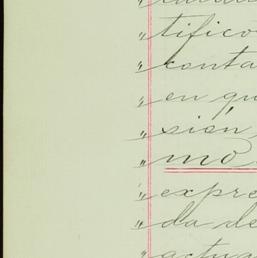 " tifico
" conta
" en qu
" sión
" mo
" expre
" da de
" actua